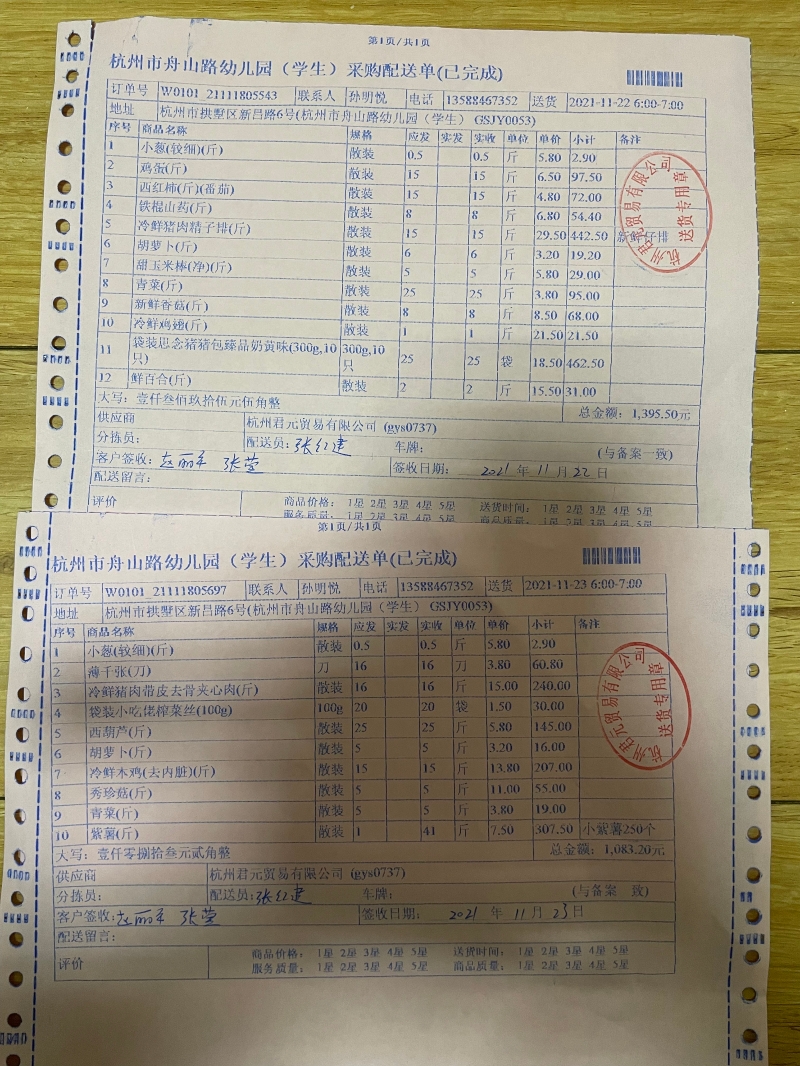 第1页/共1页
杭州市舟山路幼儿园（学生）采购配送单(已完成)
订单号 W0101_21111805543 联系人 孙明悦 电话 13588467352 送货 2021-11-22 6:00-7:00
地址 杭州市拱墅区新昌路6号(杭州市舟山路幼儿园（学生） GSJY0053)
序号 商品名称 规格 应发 实发 实收 单位 单价 小计 备注
1 小葱(较细)(斤) 散装 0.5 0.5 斤 5.80 2.90
2 鸡蛋(斤) 散装 15 15 斤 6.50 97.50
3 西红柿(斤)(番茄) 散装 15 15 斤 4.80 72.00
4 铁棍山药(斤) 散装 8 8 斤 6.80 54.40
5 冷鲜猪肉精子排(斤) 散装 15 15 斤 29.50 442.50 新鲜仔排
6 胡萝卜(斤) 散装 6 6 斤 3.20 19.20
7 甜玉米棒(净)(斤) 散装 5 5 斤 5.80 29.00
8 青菜(斤) 散装 25 25 斤 3.80 95.00
9 新鲜香菇(斤) 散装 8 8 斤 8.50 68.00
10 冷鲜鸡翅(斤) 散装 1 1 斤 21.50 21.50
11 袋装思念猪猪包臻品奶黄味(300g,10只) 300g,10只 25 25 袋 18.50 462.50
12 鲜百合(斤) 散装 2 2 斤 15.50 31.00
大写：壹仟叁佰玖拾伍元伍角整 总金额：1,395.50元
供应商 杭州君元贸易有限公司 (gys0737)
分拣员： 配送员：张红建 车牌： (与备案一致)
客户签收： 张莹 签收日期： 2021 年 11 月 22 日
配送留言：
评价 商品价格： 1星 2星 3星 4星 5星 送货时间： 1星 2星 3星 4星 5星
服务质量： 1星 2星 3星 4星 5星 商品质量： 1星 2星 3星 4星 5星
杭州君元贸易有限公司
送货专用章
第1页/共1页
杭州市舟山路幼儿园（学生）采购配送单(已完成)
订单号 W0101_21111805697 联系人 孙明悦 电话 13588467352 送货 2021-11-23 6:00-7:00
地址 杭州市拱墅区新昌路6号(杭州市舟山路幼儿园（学生） GSJY0053)
序号 商品名称 规格 应发 实发 实收 单位 单价 小计 备注
1 小葱(较细)(斤) 散装 0.5 0.5 斤 5.80 2.90
2 薄千张(刀) 刀 16 16 刀 3.80 60.80
3 冷鲜猪肉带皮去骨夹心肉(斤) 散装 16 16 斤 15.00 240.00
4 袋装小吃佬榨菜丝(100g) 100g 20 20 袋 1.50 30.00
5 西葫芦(斤) 散装 25 25 斤 5.80 145.00
6 胡萝卜(斤) 散装 5 5 斤 3.20 16.00
7 冷鲜本鸡(去内脏)(斤) 散装 15 15 斤 13.80 207.00
8 秀珍菇(斤) 散装 5 5 斤 11.00 55.00
9 青菜(斤) 散装 5 5 斤 3.80 19.00
10 紫薯(斤) 散装 1 41 斤 7.50 307.50 小紫薯250个
大写：壹仟零捌拾叁元贰角整 总金额：1,083.20元
供应商 杭州君元贸易有限公司 (gys0737)
分拣员： 配送员：张红建 车牌： (与备案一致)
客户签收： 张莹 签收日期： 2021 年 11 月 23 日
配送留言：
评价 商品价格： 1星 2星 3星 4星 5星 送货时间： 1星 2星 3星 4星 5星
服务质量： 1星 2星 3星 4星 5星 商品质量： 1星 2星 3星 4星 5星
杭州君元贸易有限公司
送货专用章